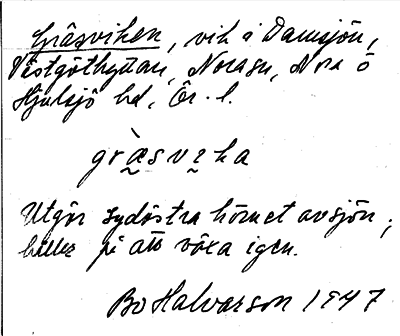 Gräsviken, vik i Damsjön,
Västgöthyttan, Norasn, Nora o
Hjulsjö bd, Ör. l.
gràsvꝛha
Utgör sydöstra hörnet av sjön;
håller på att växa igen.
Bo Halvarson 1947